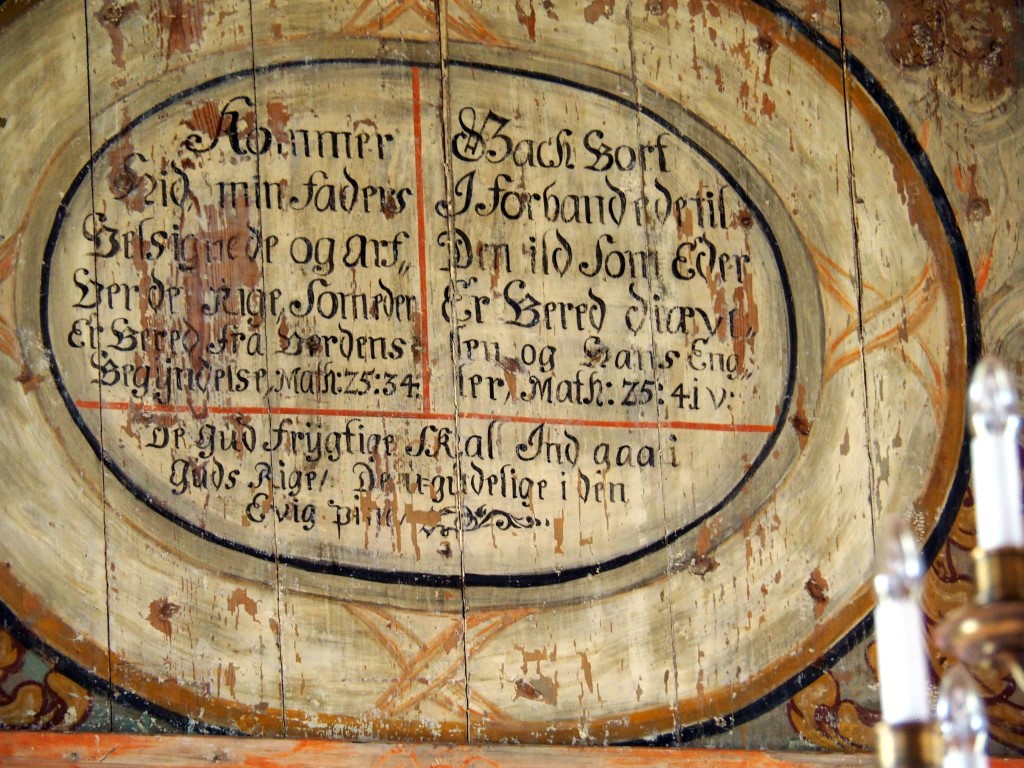 Kommer
Hid, min faders
Velsignede og arf„
Ver de Rige, Som eder
Er Bered fra Verdens
Begÿndelse, Math: 25: 34:
Gach bort
I forbandede til
Den ild Som Eder
Er Bered diæve„
len, og Hans Eng„
ler, Math: 25: 41 v:
De gud frÿgtige Skal Ind gaa i
Guds Rige, De u-gudelige i den
Evig pine